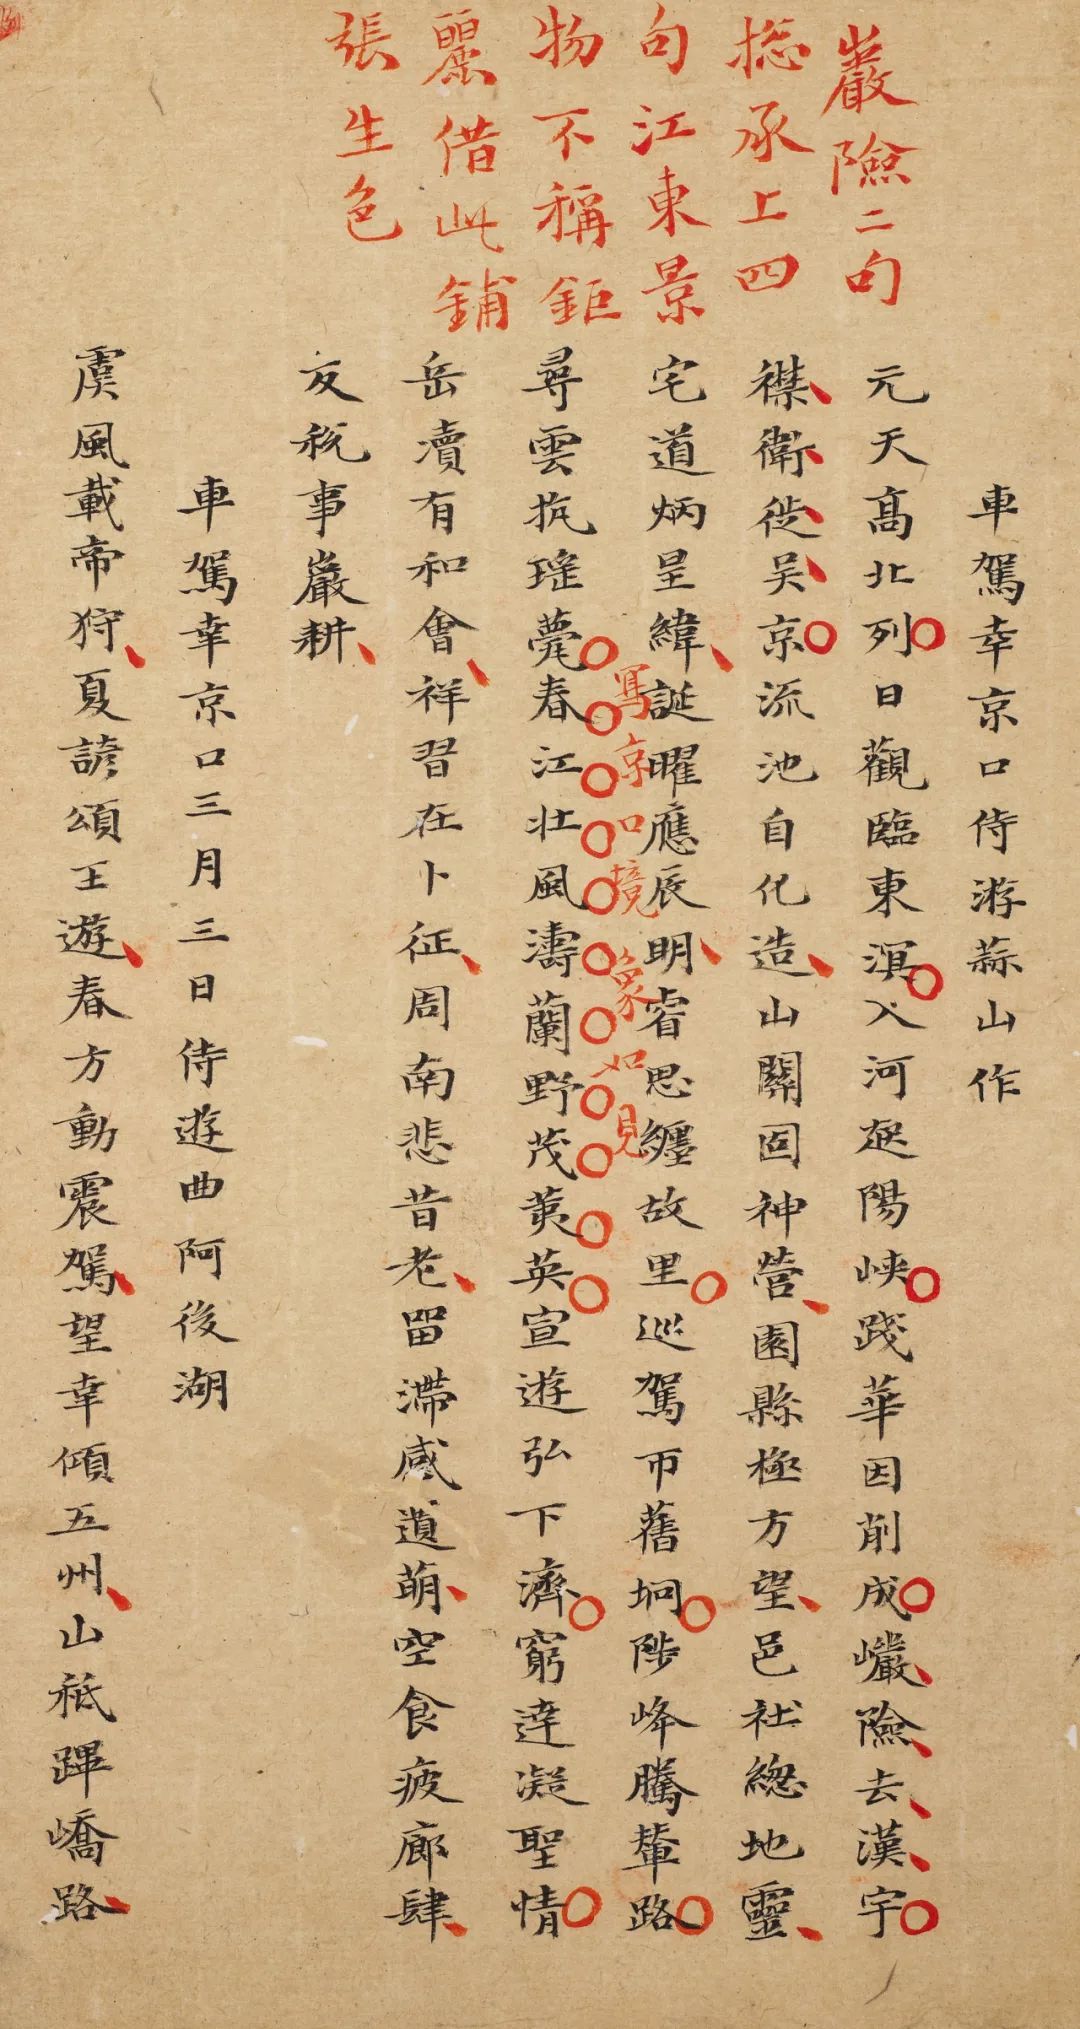 巖險二句
捴承上四
句江東景
物不稱鉅
麗借此鋪
張生色
車駕幸京口侍游蒜山作
元天髙北列日觀臨東溟入河起陽峽踐華因削成巖險去漢宇
襟衛徙吳京流池自化造山關固神營園縣極方望邑社總地靈
宅道炳星緯誕曜應辰明睿思纏故里巡駕帀舊坰陟峰騰輦路
寫京口境象如見
尋雲抗瑤甍春江壯風濤蘭野茂荑英宣遊弘下濟窮遠凝聖情
岳瀆有和會祥習在卜征周南悲昔老留滯感遺萌空食疲廊肆
反稅事巖耕
車駕幸京口三月三日侍遊曲阿後湖
虞風載帝狩夏諺頌王遊春方動震駕望幸傾五州山祇蹕嶠路